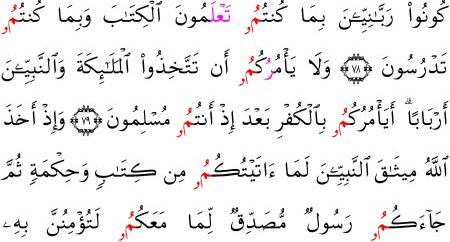 كُونُوا۟ رَبَّـٰنِيِّـۧنَ بِمَا كُنتُمُۥ تَعْلَمُونَ ٱلْكِتَـٰبَ وَبِمَا كُنتُمُۥ
تَدْرُسُونَ ٧٨ وَلَا يَأْمُرُكُمُۥ أَن تَتَّخِذُوا۟ ٱلْمَلَـٰٓئِكَةَ وَٱلنَّبِيِّـۧنَ
أَرْبَابًا ۗ أَيَأْمُرُكُمُۥ بِٱلْكُفْرِ بَعْدَ إِذْ أَنتُمُۥ مُسْلِمُونَ ٧٩ وَإِذْ أَخَذَ
ٱللَّهُ مِيثَـٰقَ ٱلنَّبِيِّـۧنَ لَمَا ءَاتَيْتُكُمُۥ مِن كِتَـٰبٍ وَحِكْمَةٍ ثُمَّ
جَآءَكُمُۥ رَسُولٌ مُّصَدِّقٌ لِّمَا مَعَكُمُۥ لَتُؤْمِنُنَّ بِهِۦ